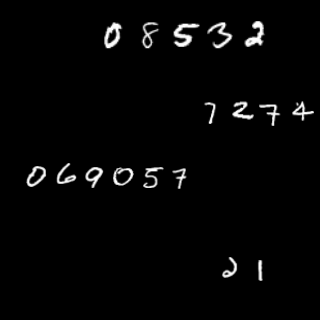 08532
7274
069057
21